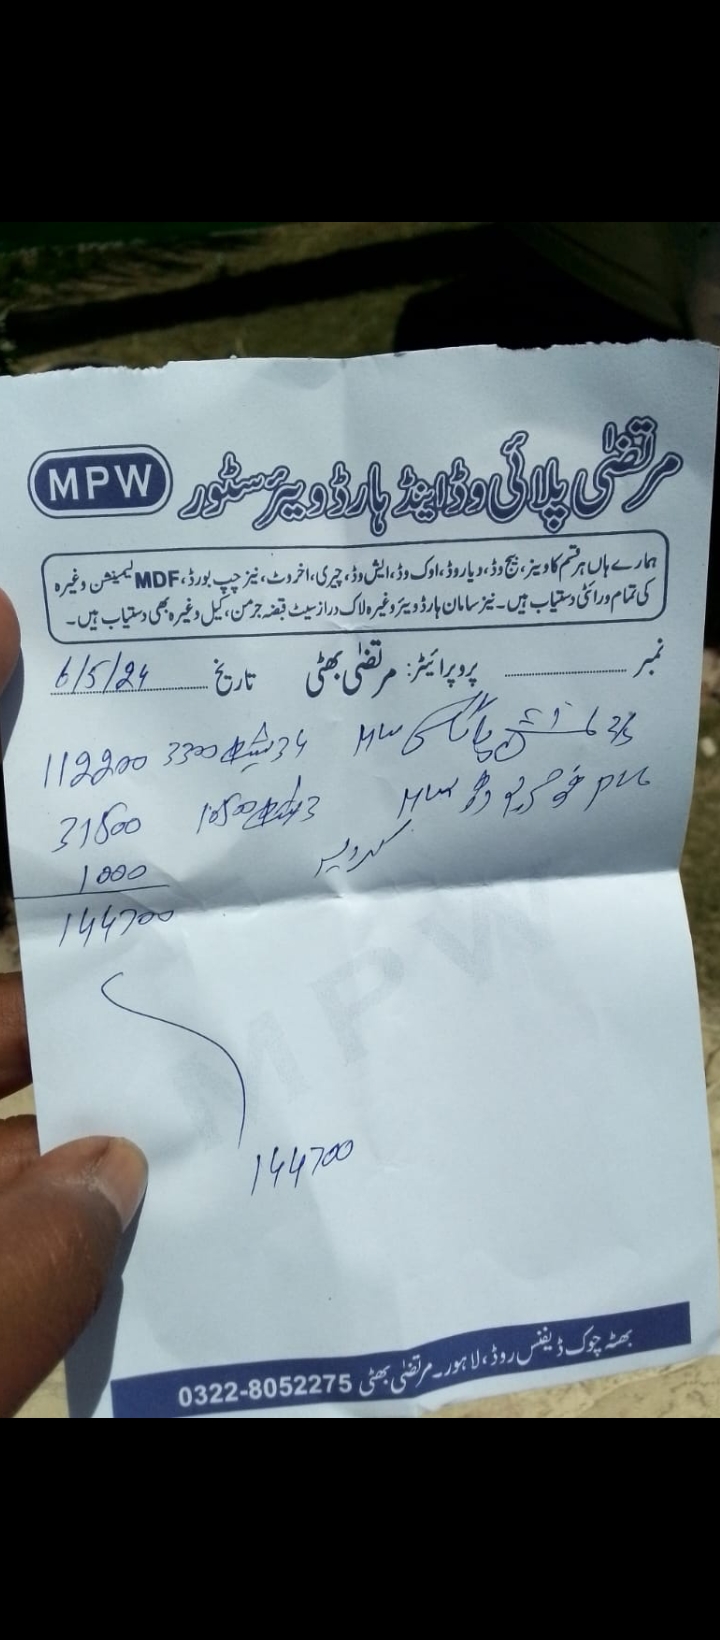 مرتضٰی پلائی وڈ اینڈ ہارڈ ویئر سٹور MPW
ہمارے ہاں ہر قسم کا وینر، بیچ وڈ، دیار وڈ، اوک وڈ، ایش وڈ، چیری، اخروٹ، نیز چپ بورڈ، MDF لیمینشن وغیرہ
کی تمام ورائٹی دستیاب ہیں۔ نیز سامان ہارڈ ویئر وغیرہ لاک دراز سیٹ قبضہ جرمن، کیل وغیرہ بھی دستیاب ہیں۔
نمبر پروپرائیٹر: مرتضٰی بھٹی تاریخ 6/5/24
34 شیٹ 3300 112200
3 10500 31500
1000
144700
MPW
144700
بھٹہ چوک ڈیفنس روڈ، لاہور۔ مرتضٰی بھٹی 0322-8052275